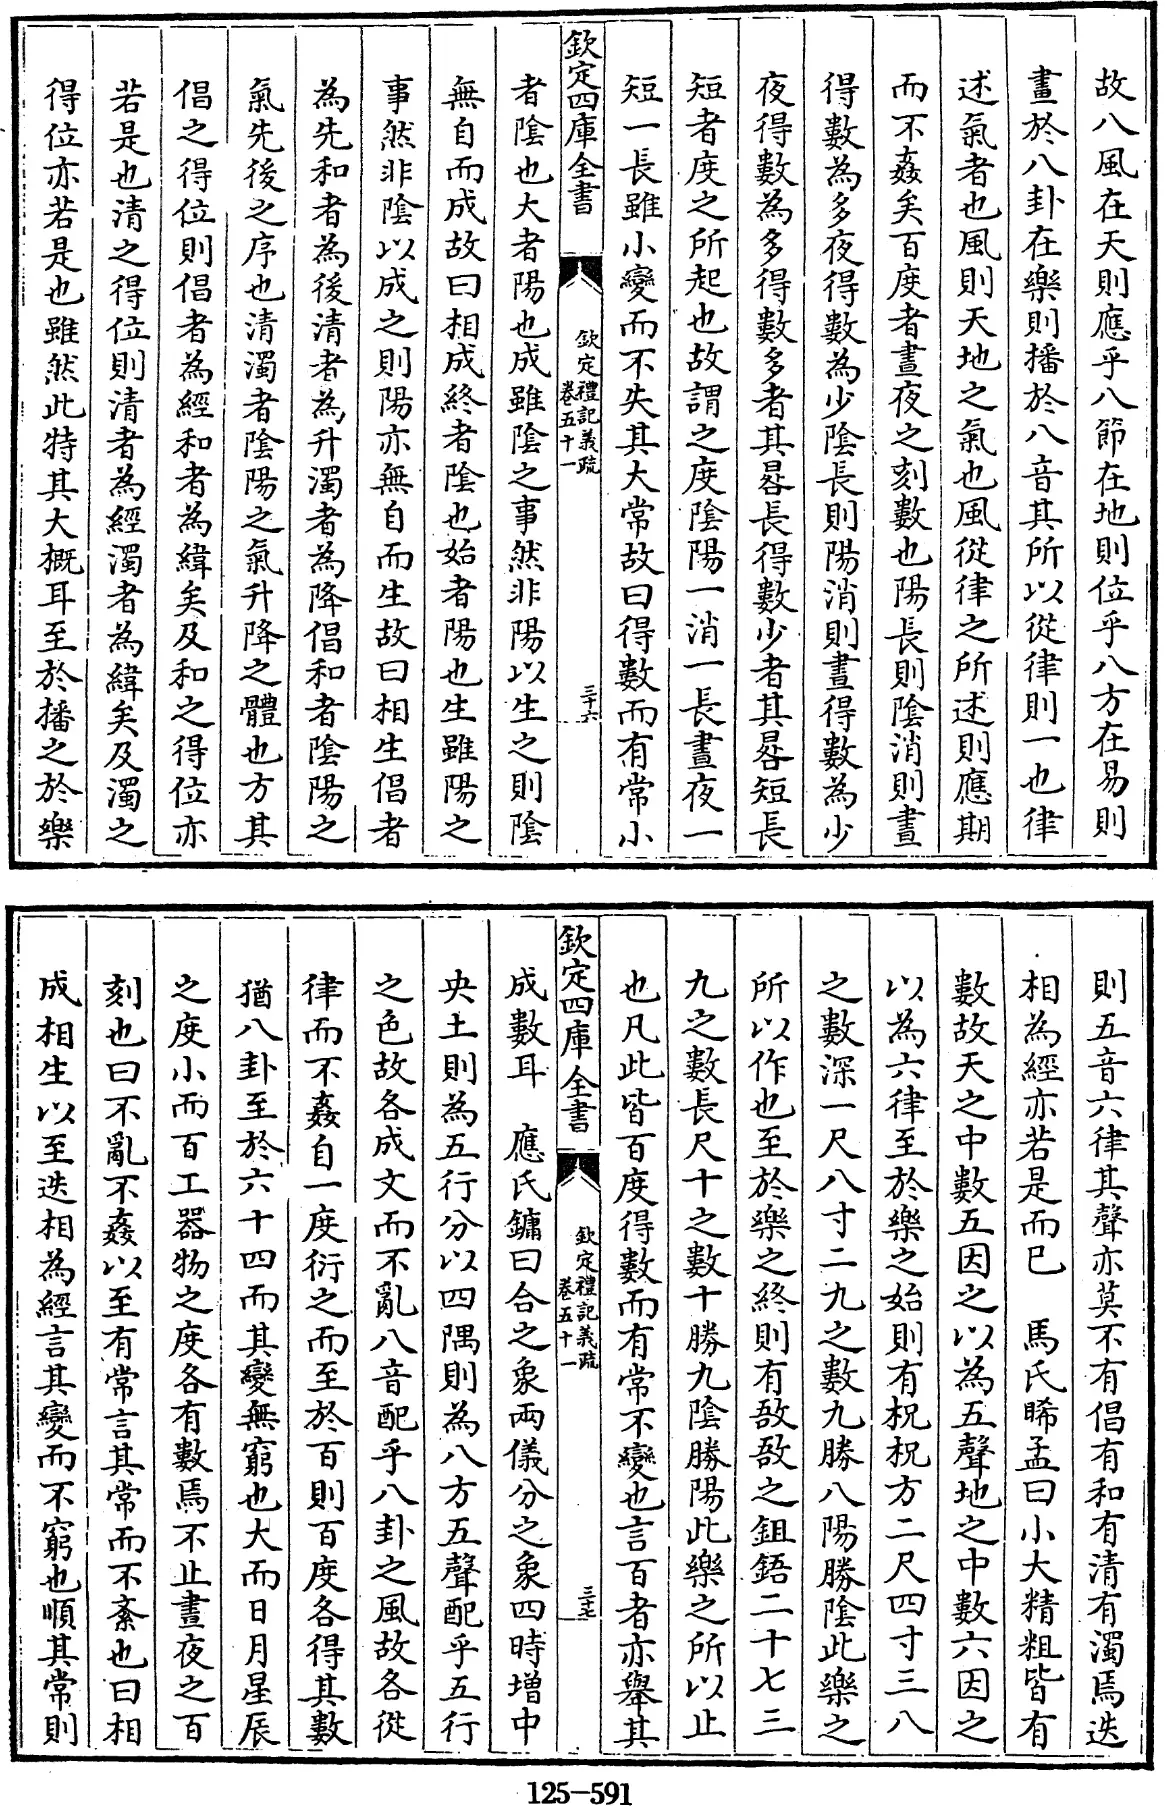 故八風在天則應乎八節在地則位乎八方在易則
畫於八卦在樂則播於八音其所以從律則一也律
述氣者也風則天地之氣也風從律之所述則應期
而不姦矣百度者晝夜之刻數也陽長則陰消則晝
得數為多夜得數為少陰長則陽消則晝得數為少
夜得數為多得數多者其晷長得數少者其晷短長
短者度之所起也故謂之度陰陽一消一長晝夜一
短一長雖小變而不失其大常故曰得數而有常小
欽定四庫全書
欽定禮記義疏
卷五十一
三十六
者陰也大者陽也成雖陰之事然非陽以生之則陰
無自而成故曰相成終者陰也始者陽也生雖陽之
事然非陰以成之則陽亦無自而生故曰相生倡者
為先和者為後清者為升濁者為降倡和者陰陽之
氣先後之序也清濁者陰陽之氣升降之體也方其
倡之得位則倡者為經和者為緯矣及和之得位亦
若是也清之得位則清者為經濁者為緯矣及濁之
得位亦若是也雖然此特其大概耳至於播之於樂
則五音六律其聲亦莫不有倡有和有清有濁焉迭
相為經亦若是而已　馬氏晞孟曰小大精粗皆有
數故天之中數五因之以為五聲地之中數六因之
以為六律至於樂之始則有柷柷方二尺四寸三八
之數深一尺八寸二九之數九勝八陽勝陰此樂之
所以作也至於樂之終則有敔敔之鉏鋙二十七三
九之數長尺十之數十勝九陰勝陽此樂之所以止
也凡此皆百度得數而有常不變也言百者亦舉其
欽定四庫全書
欽定禮記義疏
卷五十一
三十七
成數耳　應氏鏞曰合之象兩儀分之象四時增中
央土則為五行分以四隅則為八方五聲配乎五行
之色故各成文而不亂八音配乎八卦之風故各從
律而不姦自一度衍之而至於百則百度各得其數
猶八卦至於六十四而其變無窮也大而日月星辰
之度小而百工器物之度各有數焉不止晝夜之百
刻也曰不亂不姦以至有常言其常而不紊也曰相
成相生以至迭相為經言其變而不窮也順其常則
125-591